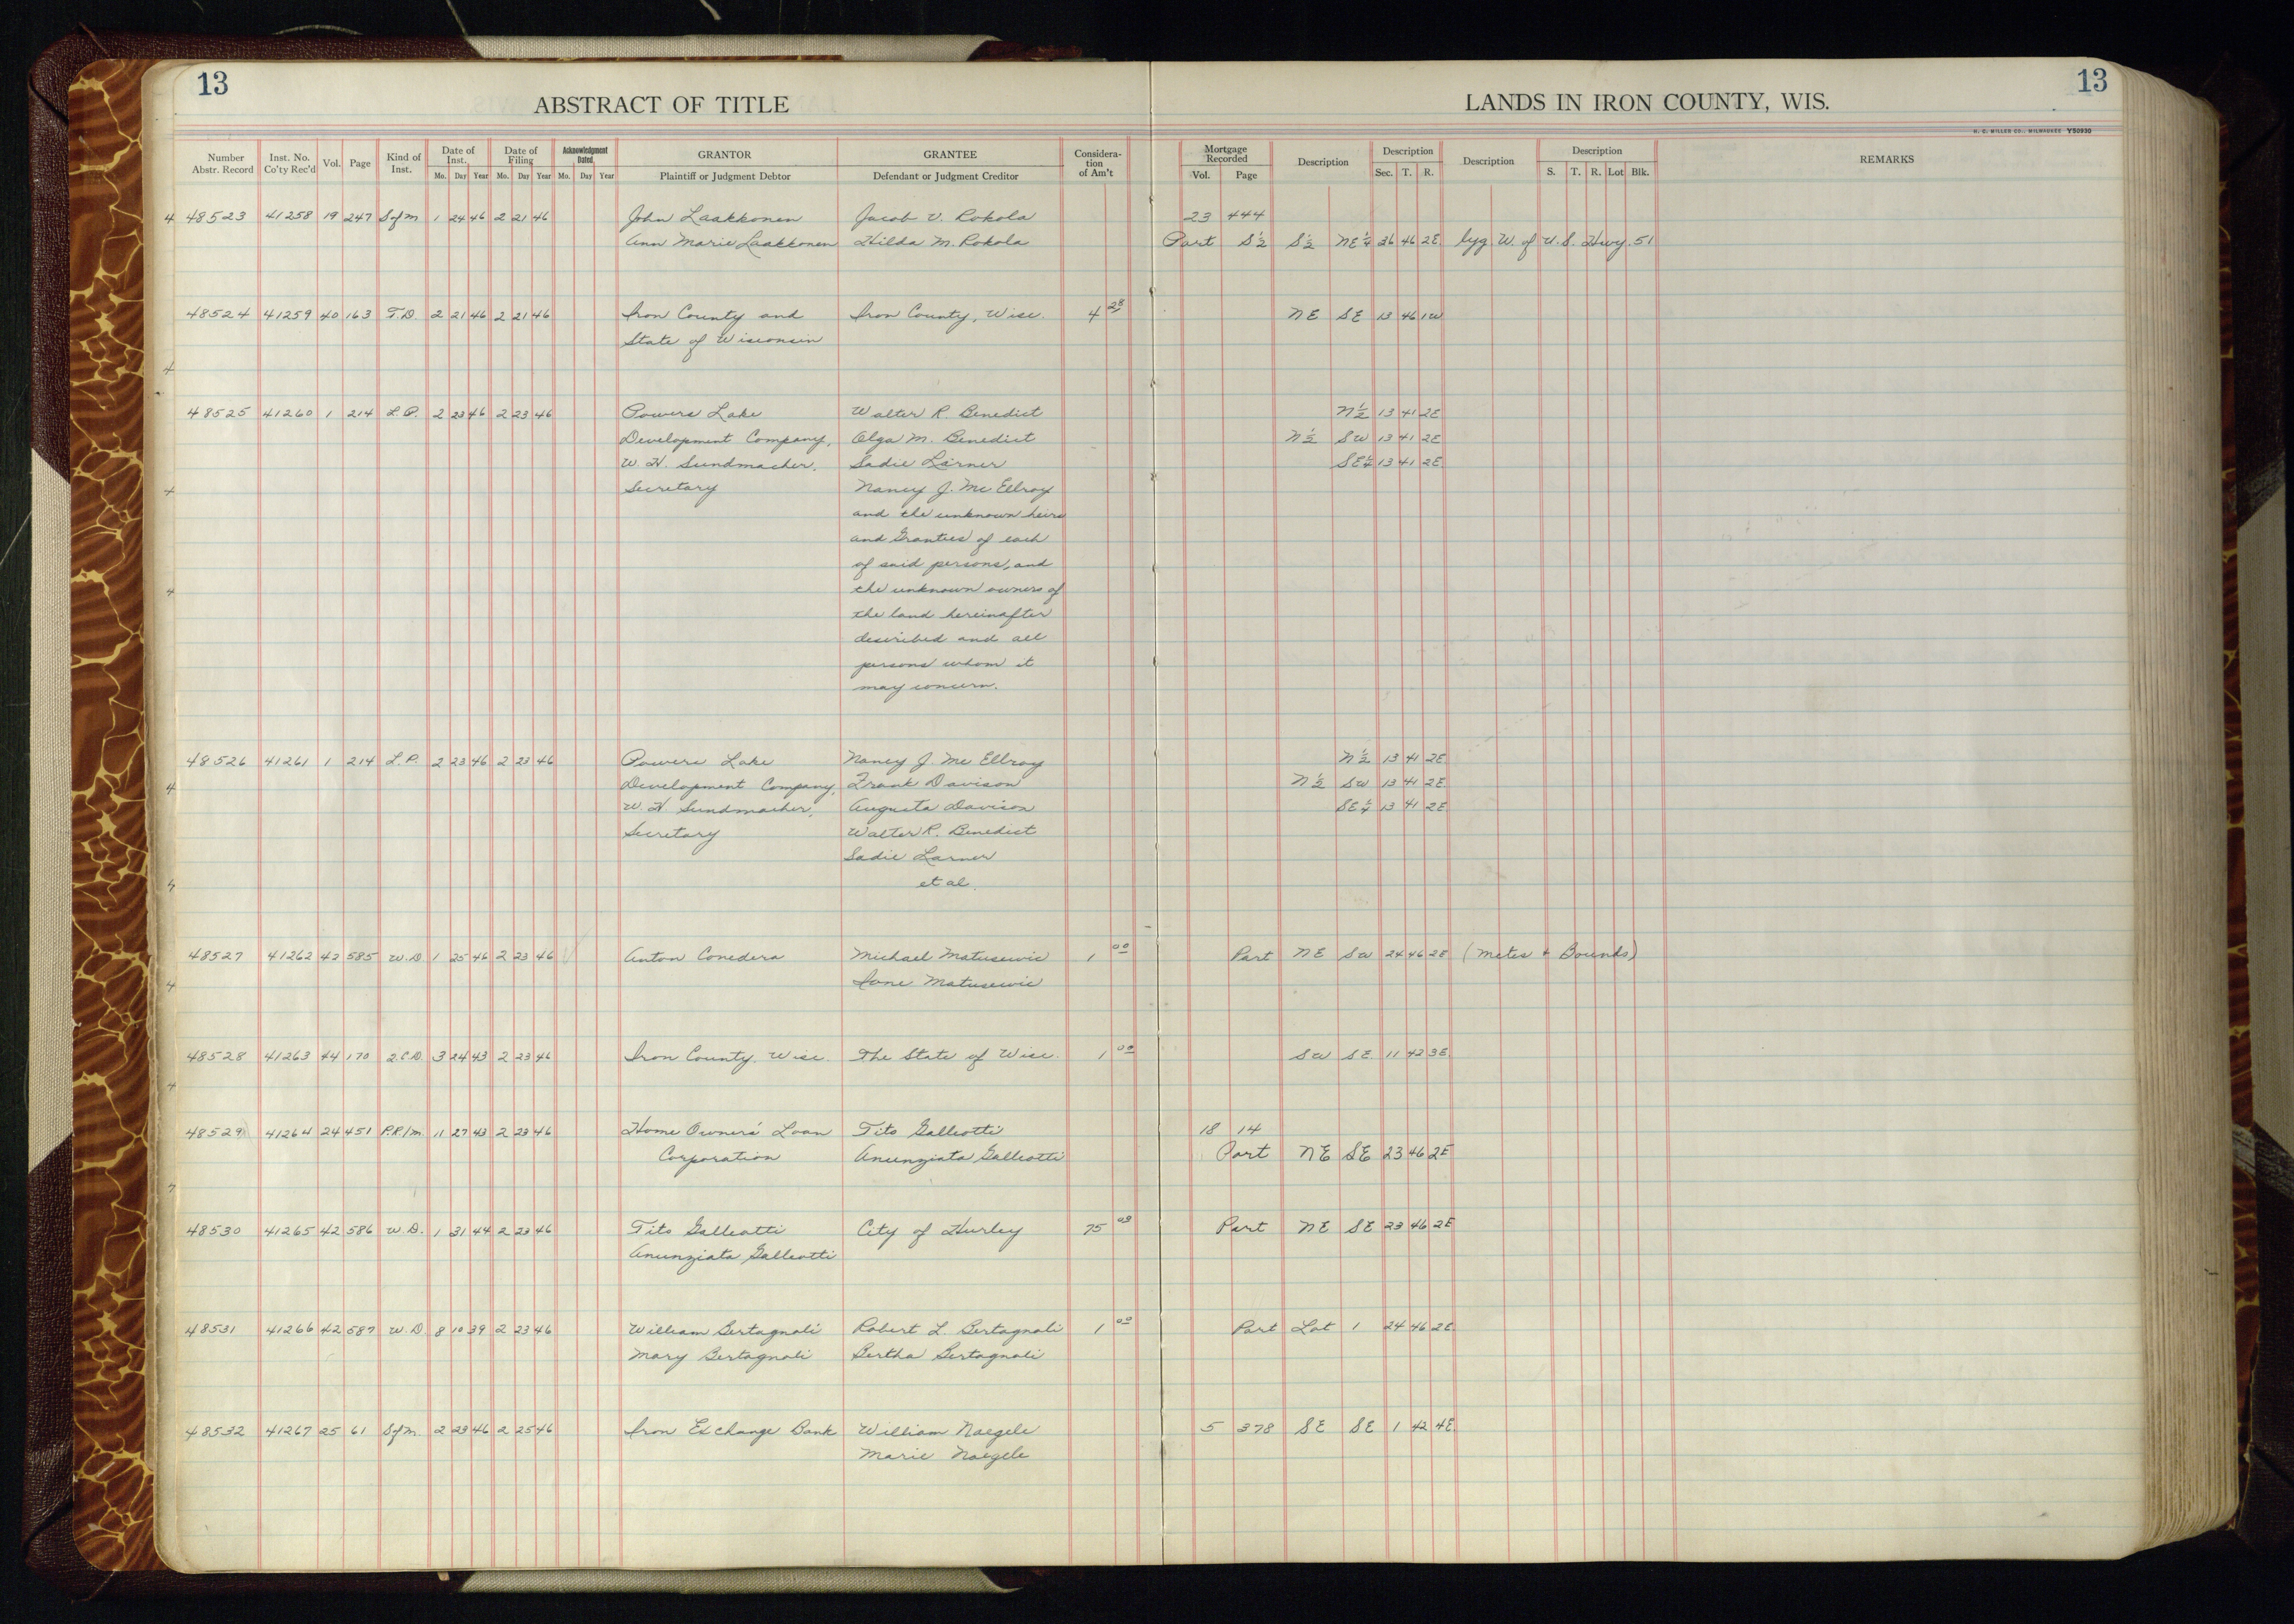 13
13
ABSTRACT OF TITLE
LANDS IN IRON COUNTY, WIS.
H. C. MILLER CO., MILWAUKEE Y50930
Number Abstr. Record Inst. No. Co'ty Rec'd Vol. Page Kind of Inst. Date of Inst. Mo. Day Year Date of Filing Mo. Day Year Acknowledgment Dated Mo. Day Year GRANTOR Plaintiff or Judgment Debtor GRANTEE Defendant or Judgment Creditor Considera-tion of Am't Mortgage Recorded Vol. Page Description Description Sec. T. R. Description Description S. T. R. Lot Blk. REMARKS
4 48523 41258 19 247 S of M 1 24 46 2 21 46 John Laakkonen Jacob V. Rokola 23 444
Ann Marie Laakkonen Hilda M. Rokola Part S½ S½ NE¼ 26 46 2E lyg W. of U.S. Hwy. 51
48524 41259 40 163 T.D. 2 21 46 2 21 46 Iron County and Iron County, Wisc. 4 28 NE SE 13 46 1W
State of Wisconsin
4
48525 41260 1 214 L.P. 2 23 46 2 23 46 Powers Lake Walter R. Benedict N½ 13 41 2E
Development Company, Olga M. Benedict N½ SW 13 41 2E
W. H. Sundmacher, Sadie Larner SE¼ 13 41 2E
4 Secretary Nancy J. Mc Ellroy
and the unknown heirs
and Grantees of each
of said persons, and
4 the unknown owners of
the land hereinafter
described and all
persons whom it
may concern.
48526 41261 1 214 L.P. 2 23 46 2 23 46 Powers Lake Nancy J. Mc Ellroy N½ 13 41 2E
4 Development Company, Frank Davison N½ SW 13 41 2E
W. H. Sundmacher, Augusta Davison SE¼ 13 41 2E
Secretary Walter R. Benedict
Sadie Larner
4 et al.
48527 41262 42 585 W.D. 1 25 46 2 23 46 Anton Conedera Michael Matusewic 1 00 Part NE SW 24 46 2E (Metes + Bounds)
4 Jane Matusewic
48528 41263 44 170 Q.C.D. 3 24 43 2 23 46 Iron County, Wisc. The State of Wisc. 1 00 SW SE 11 42 3E
4
48529 41264 24 451 P.R/M 11 27 43 2 23 46 Home Owners' Loan Tito Galleotti 18 14
Corporation Anunziata Galleotti Part NE SE 23 46 2E
48530 41265 42 586 W.D. 1 31 44 2 23 46 Tito Galleotti City of Hurley 75 00 Part NE SE 23 46 2E
Anunziata Galleotti
48531 41266 42 587 W.D. 8 10 39 2 23 46 William Bertagnoli Robert L. Bertagnoli 1 00 Part Lot 1 24 46 2E
Mary Bertagnoli Bertha Bertagnoli
48532 41267 25 61 S of M. 2 23 46 2 25 46 Iron Exchange Bank William Naegele 5 378 SE SE 1 42 4E
Marie Naegele